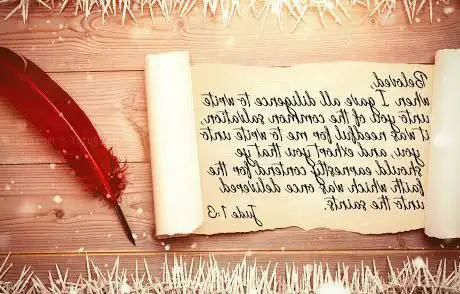 Beloved,
when I gave all diligence to write
unto you of the common salvation,
it was needful for me to write unto
you, and exhort you that ye
should earnestly contend for the
faith which was once delivered
unto the saints.
Jude 1:3